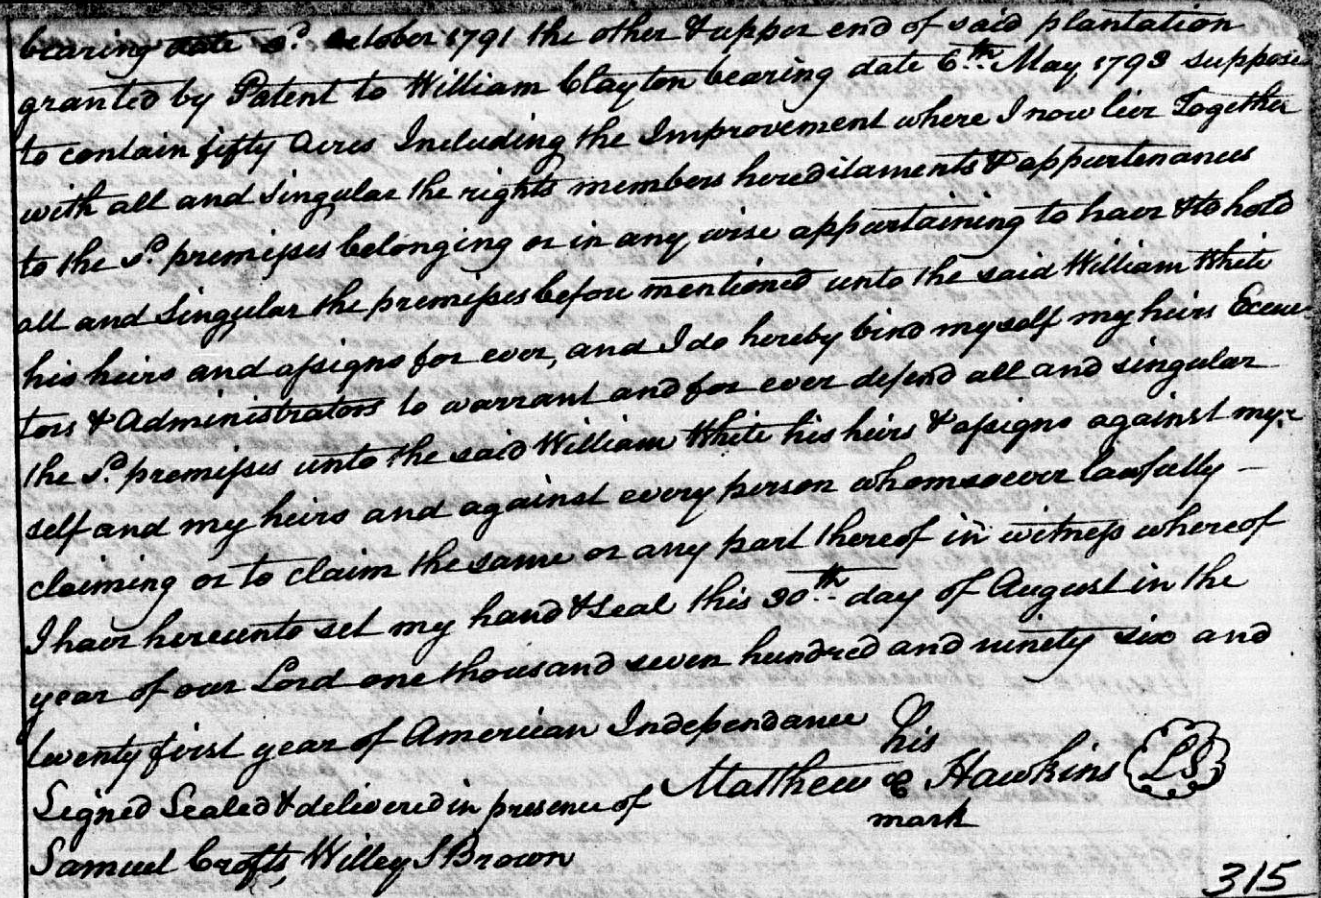 bearing date 3d. October 1791 the other & upper end of said plantation
granted by Patent to William Clayton bearing date 6th May 1793 suppose
to contain fifty Acres Including the Improvement where I now live Together
with all and singular the rights members hereditaments & appurtenances
to the sd. premises belonging or in any wise appurtaining to have & to hold
all and Singular the premises before mentioned unto the said William White
his heirs and assigns for ever, and I do hereby bind myself my heirs Execu-
tors & Administrators to warrant and for ever defend all and singular
the sd. premises unto the said William White his heirs & assigns against my-
self and my heirs and against every person whomsoever lawfully -
claiming or to claim the same or any part thereof in witness whereof
I have hereunto set my hand & Seal this 30th day of August in the
year of our Lord one thousand seven hundred and ninety six and
twenty first year of American Independance
Signed Sealed & delivered in presence of Matthew his mark Hawkins LS
Samuel Crofts, Willey S Brown
315